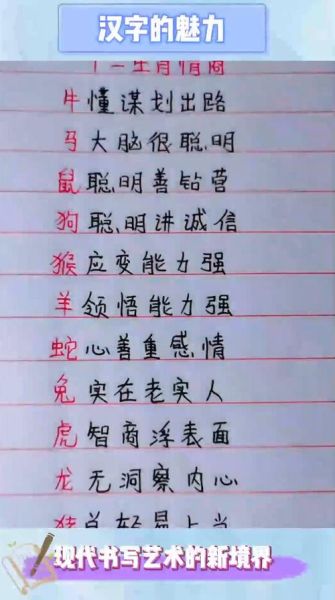 汉字的魅力
十二生肖情商
牛懂谋划出路
马大脑很聪明
鼠聪明善钻营
狗聪明讲诚信
猴应变能力强
羊领悟能力强
蛇心善重感情
兔实在老实人
虎智商浮表面
龙无洞察内心
猪总轻易上当
现代书写艺术的新境界